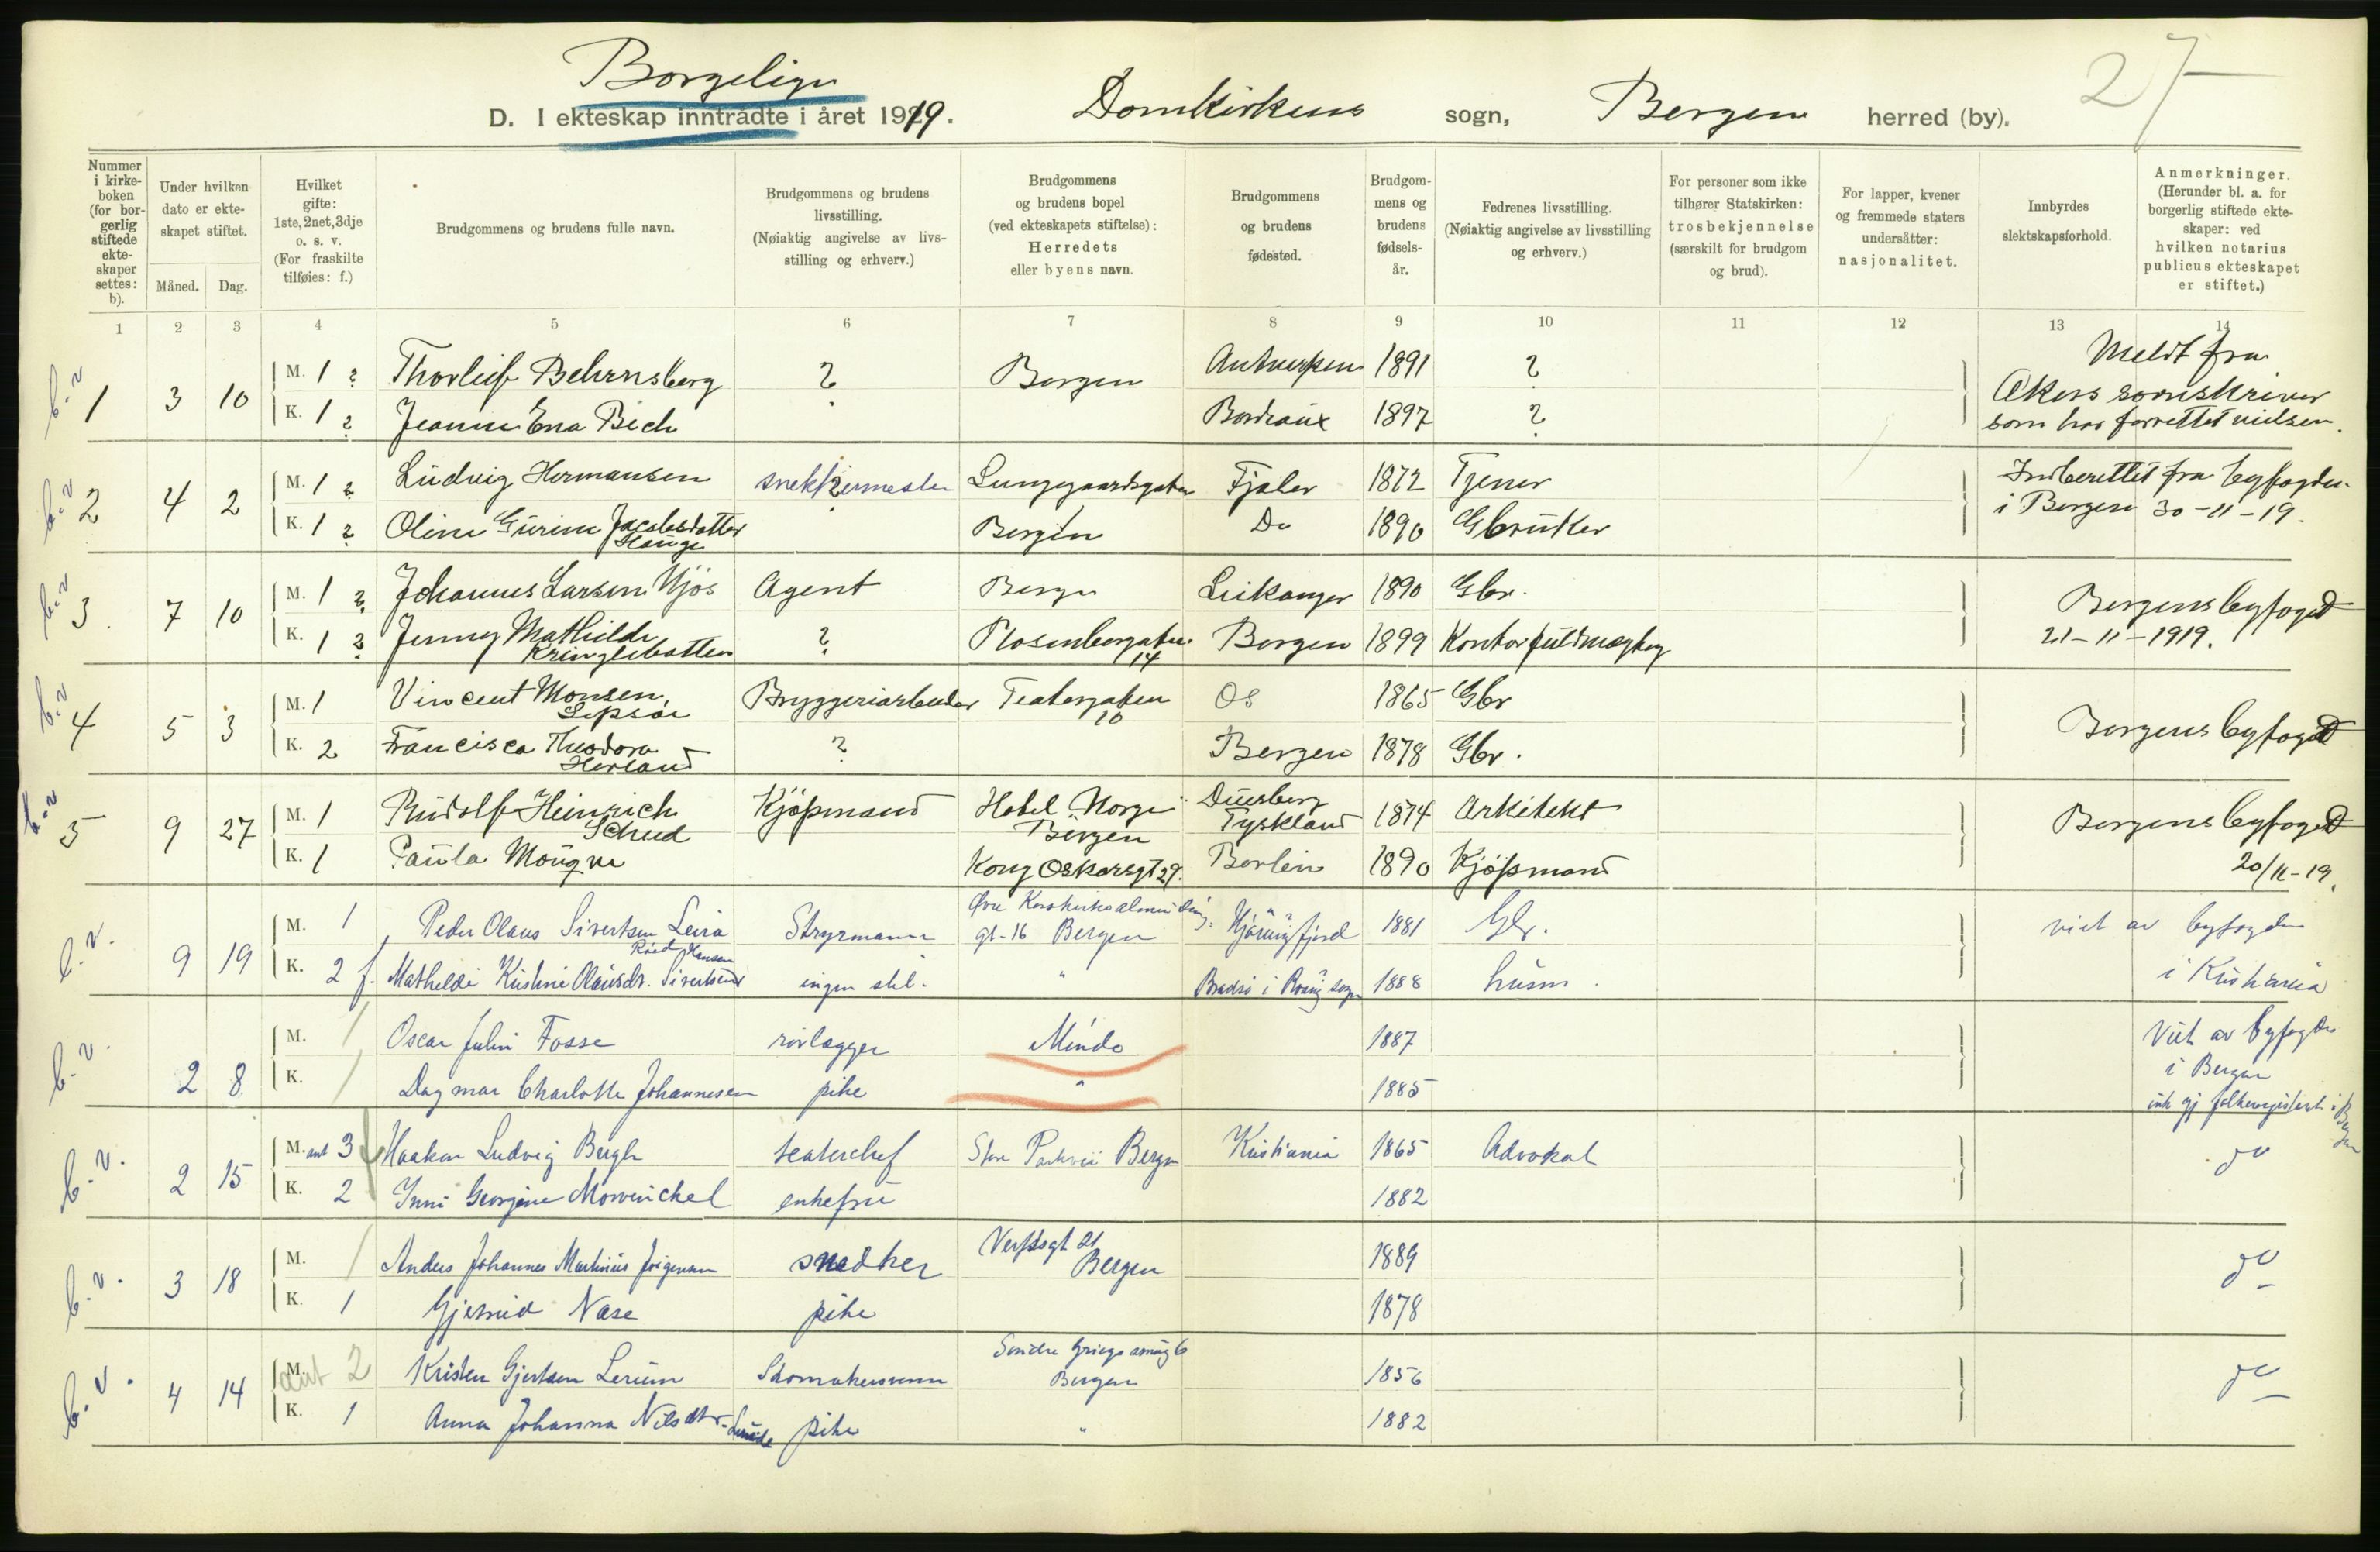 Borgelige
27
D. I ekteskap inntrådte i året 1919. Domkirkens sogn, Bergen herred (by).
Nummer i kirkeboken (for borgerlig stiftede ekteskaper settes: b).
Under hvilken dato er ekteskapet stiftet.
Måned. Dag.
Hvilket gifte: 1ste, 2net, 3dje o. s. v. (For fraskilte tilføies: f.)
Brudgommens og brudens fulle navn.
Brudgommens og brudens livsstilling. (Nøiaktig angivelse av livsstilling og erhverv.)
Brudgommens og brudens bopel (ved ekteskapets stiftelse): Herredets eller byens navn.
Brudgommens og brudens fødested.
Brudgommens og brudens fødselsår.
Fedrenes livsstilling. (Nøiaktig angivelse av livsstilling og erhverv.)
For personer som ikke tilhører Statskirken: trosbekjennelse (særskilt for brudgom og brud).
For lapper, kvener og fremmede staters undersåtter: nasjonalitet.
Innbyrdes slektskapsforhold.
Anmerkninger. (Herunder bl. a. for borgerlig stiftede ekteskaper: ved hvilken notarius publicus ekteskapet er stiftet.)
1 2 3 4 5 6 7 8 9 10 11 12 13 14
b.v 1 3 10 M. 1 ? Thorleif Behrnsberg ? Bergen Antwerpen 1891 ? Meldt fra
K. 1 ? Jeanne Ena Bech Bordeaux 1897 ? Akers sorenskriver
som har forrettet vielsen.
b.v 2 4 2 M. 1 ? Ludvig Hermansen snekkermester Lungegaardsgaten Fjaler 1872 Tjener Indberettet fra byfogden
K. 1 ? Oline Gurine Jacobsdatter Hauge Bergen Do 1890 Gbruker i Bergen 30-11-19.
b.v 3 7 10 M. 1 ? Johannes Larsen Njøs Agent Bergen Leikanger 1890 Gbr. Bergens byfoged
K. 1 ? Jenny Mathilde Kringlebotten ? Rosenberggaten 14 Bergen 1899 Kontorfuldmægtig 21-11-1919.
b.v 4 5 3 M. 1 Vincent Monsen Lepsøe Bryggeriarbeider Teatergaten 10 Os 1865 Gbr Bergens byfoged
K. 2 Francisca Theodora Herland ? Bergen 1878 Gbr.
b.v 5 9 27 M. 1 Rudolf Heinrich Schud Kjøpmand Hotel Norge Bergen Duisberg Tyskland 1874 Arkitekt Bergens byfoged
K. 1 Paula Kong Oskarsgt 29. Berlin 1890 Kjøpmand 20/11-19.
b.v. 9 19 M. 1 Peder Olaus Sivertsen Leira Styrmann Øvre Korskirkealmending gt. 16 Bergen Hjørungfjord 1881 Gbr. viet av byfogden
K. 2 f. Mathilde Kristine Olausdr. Sivertsen Hansen ingen stil. " 1888 husm. i Kristiania
b.v. 2 8 M. 1 Oscar Julin Fosse rørlægger Minde 1887 Viet av byfogden
K. 1 Dagmar Charlotte Johannesen pike " 1885 i Bergen
folkeregistert i Bergen
b.v. 2 15 M. ant 3 Haakon Ludvig Bergh teaterchef Store Parkvei Bergen Kristiania 1865 Advokat do
K. 2 Inni Georgine Mowinckel enkefru 1882
b.v. 3 18 M. 1 Anders Johannes Martinus Jørgensen snedker Verftsgt 21 Bergen 1889 do
K. 1 Gjertrud Næse pike 1878
b.v. 4 14 M. ant 2 Kristen Gjertsen Lerum Skomakersvenn Søndre Bergen 1856 do
K. 1 Anna Johanna Nilsdtr. Lunde pike " 1882